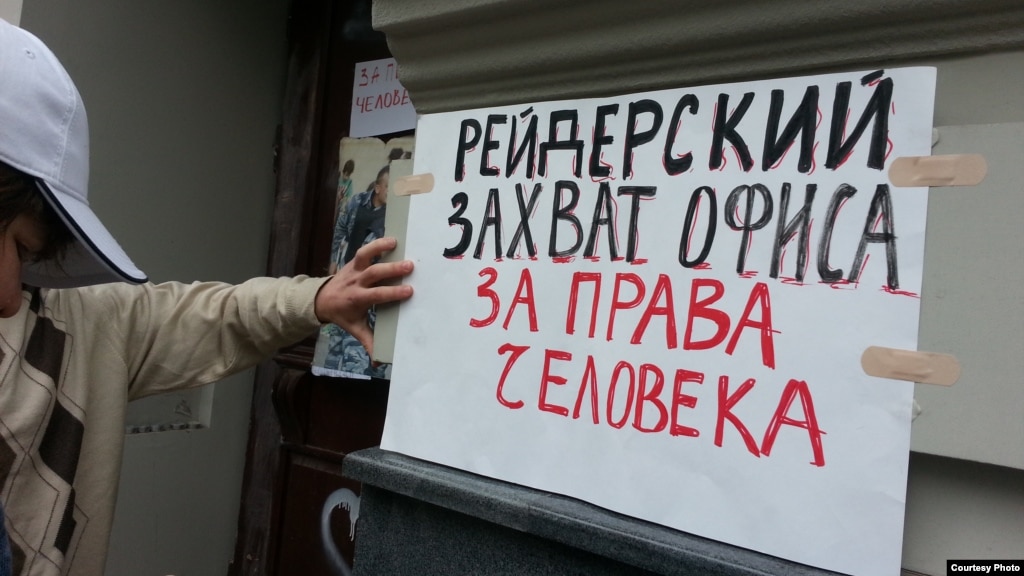 ЗА П
ЧЕЛОВЕ
РЕЙДЕРСКИЙ
ЗАХВАТ ОФИСА
ЗА ПРАВА
ЧЕЛОВЕКА
Courtesy Photo